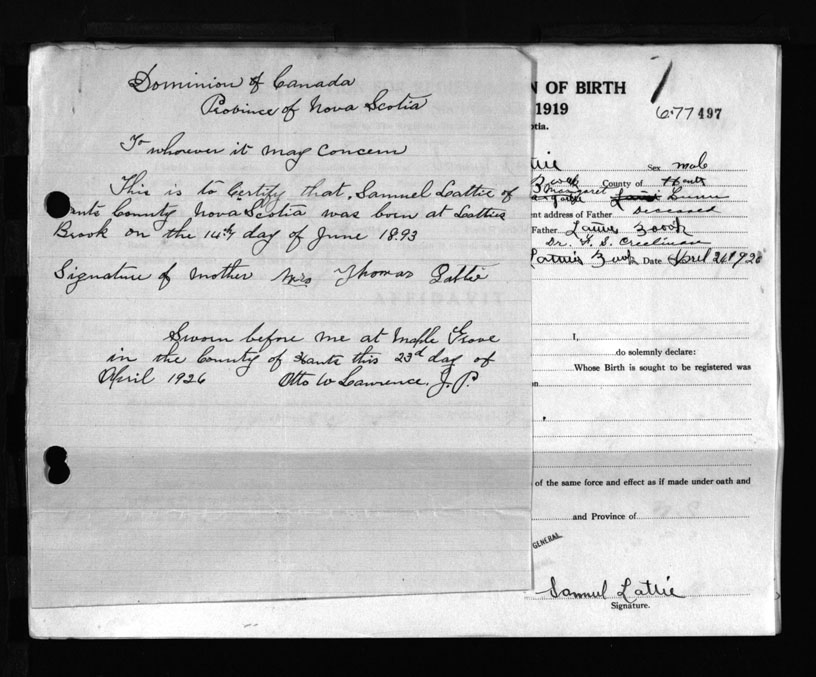 Dominion of Canada
Province of Nova Scotia
To whoever it may concern
This is to Certify that, Samuel Lattie of
ants County Nova Scotia was born at Latties
Brook on the 14th day of June 1893
Signature of mother Mrs Thomas Lattie
Sworn before me at Maple Grove
in the County of Hants this 23d day of
April 1926 Otto W Lawrence, J. P.
N OF BIRTH
1919
otia.
677497
ttie Sex male
County of Hants
Margaret
ent address of Father Deceased
Father Latties Brook
Dr. F. S. Creelman
Latties Brook Date April 26 1926
I,
do solemnly declare:
Whose Birth is sought to be registered was
on
,
of the same force and effect as if made under oath and
and Province of
GENERAL
Samuel Lattie
Signature.